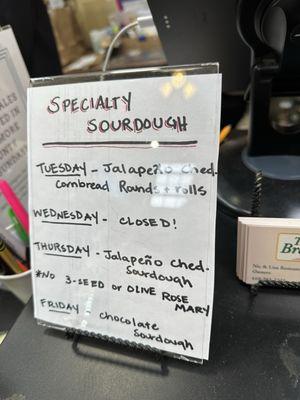 SPECIALTY
SOURDOUGH
TUESDAY - JALAPEÑO CHED.
CORNBREAD ROUNDS + ROLLS
WEDNESDAY - CLOSED!
THURSDAY - JALAPEÑO CHED.
SOURDOUGH
*NO 3-SEED OR OLIVE ROSE
MARY
FRIDAY CHOCOLATE
SOURDOUGH